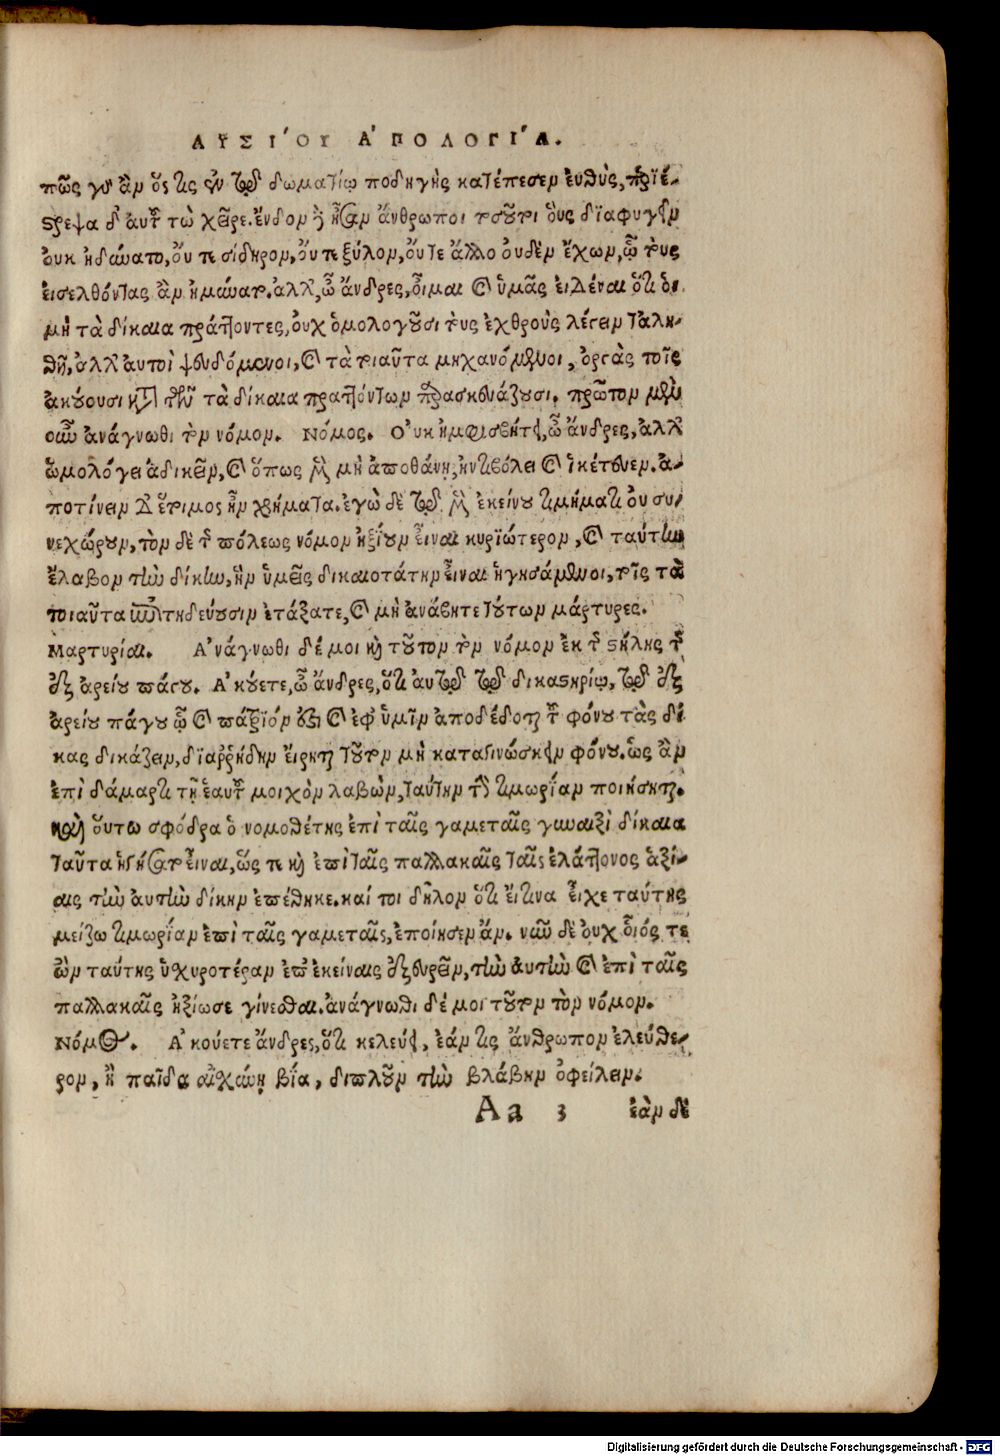 ΛΥΣΙ´ΟΥ Α᾿ΠΟΛΟΓΙ´Α.
πῶς γὰρ ἂν ὅς τις ἐν τῷ δωματίῳ πληγεὶς κατέπεσεν ἐυθὺς, περιέ-
στρεψα δ᾽ αυτοῦ τὼ χεῖρε. ἔνδον δὲ ἦσαν ἄνθρωποι τοσοῦτοι οὓς διαφυγεῖν
ὀυκ ἠδύνατο, ὄυ τε σίδηρον, ὄυ τε ξύλον, ὄυτε ἄλλο ὀυδὲν ἔχων, ᾧ τοὺς
εισελθόντας ἂν ἠμύνατο. ἀλλ᾽, ὦ ἄνδρες, οἶμαι καὶ ὑμᾶς ειδέναι ὅτι ὁι
μὴ τὰ δίκαια πράττοντες, ὀυχ ὁμολογοῦσι τοὺς ἐχθροὺς λέγειν ταλη-
θῆ, ἀλλ᾽ ἀυτοὶ ψευδόμενοι, καὶ τὰ τοιαῦτα μηχανόμενοι, ὀργὰς τοῖς
ἀκούουσι κατὰ τῶν τὰ δίκαια πραττόντων παρασκευάζουσι. πρῶτον μὲν
οὖν ἀνάγνωθι τὸν νόμον. Νόμος. Ο᾽υκ ἠμφισβήτει, ὦ ἄνδρες, ἀλλ᾽
ὡμολόγει ἀδικεῖν, καὶ ὅπως μὲν μὴ ἀποθάνῃ, ἠντιβόλει καὶ ἱκέτευεν. ἀ-
ποτίνειν δ᾽ ἕτοιμος ἦν χρήματα. ἐγὼ δὲ τῷ μὲν ἐκείνου τιμήματι ὀυ συ-
νεχώρουν, τὸν δὲ τῆς πόλεως νόμον ἠξίουν εἶναι κυριώτερον, καὶ ταύτην
ἔλαβον τὴν δίκην, ἣν ὑμεῖς δικαιοτάτην εἶναι ἡγησάμενοι, τοῖς τὰ
τοιαῦτα ἐπιτηδεύουσιν ἐτάξατε, καὶ μὴ ἀνάβητε τούτων μάρτυρες.
Μαρτυρίαι. Α᾽νάγνωθι δέ μοι καὶ τοῦτον τὸν νόμον ἐκ τῆς στήλης τῆς
ἐξ ἀρείου πάγου. Α᾽κούετε, ὦ ἄνδρες, ὅτι αυτῷ τῷ δικαστηρίῳ, τῷ ἐξ
ἀρείου πάγου ᾧ καὶ πάτριόν ἐστι καὶ ἐφ᾽ ὑμῖν ἀποδέδοται τοῦ φόνου τὰς δί-
κας δικάζειν, διαῤῥήδην ἔιρηται τοῦτον μὴ καταγινώσκειν φόνου. ὡς ἂν
ἐπὶ δάμαρτι τῇ ἑαυτοῦ μοιχὸν λαβὼν, ταύτην τὴν τιμωρίαν ποιήσηται.
καὶ ὅυτω σφόδρα ὁ νομοθέτης ἐπὶ ταῖς γαμεταῖς γυναιξὶ δίκαια
ταῦτα ἡγήσατο εἶναι, ὥς τε καὶ ἐπὶ ταῖς παλλακαῖς ταῖς ἐλάττονος ἀξί-
αις τὴν ἀυτὴν δίκην ἐπέθηκε. καί τοι δῆλον ὅτι ἔι τινα εἶχε ταύτης
μείζω τιμωρίαν ἐπὶ ταῖς γαμεταῖς, ἐποίησεν ἄν. νῦν δὲ ὀυχ οἷός τε
ὢν ταύτης ἰσχυροτέραν ἐπ᾽ ἐκείναις ἐξευρεῖν, τὴν ἀυτὴν καὶ ἐπὶ ταῖς
παλλακαῖς ἠξίωσε γίνεσθαι. ἀνάγνωθι δέ μοι τοῦτον τὸν νόμον.
Νόμος. Α᾽κούετε ἄνδρες, ὅτι κελεύει, ἐάν τις ἄνθρωπον ἐλεύθε-
ρον, ἢ παῖδα αἰσχύνῃ βίᾳ, διπλοῦν τὴν βλάβην ὀφείλειν.
Aa 3 ἐὰν δὲ
Digitalisierung gefördert durch die Deutsche Forschungsgemeinschaft - DFG